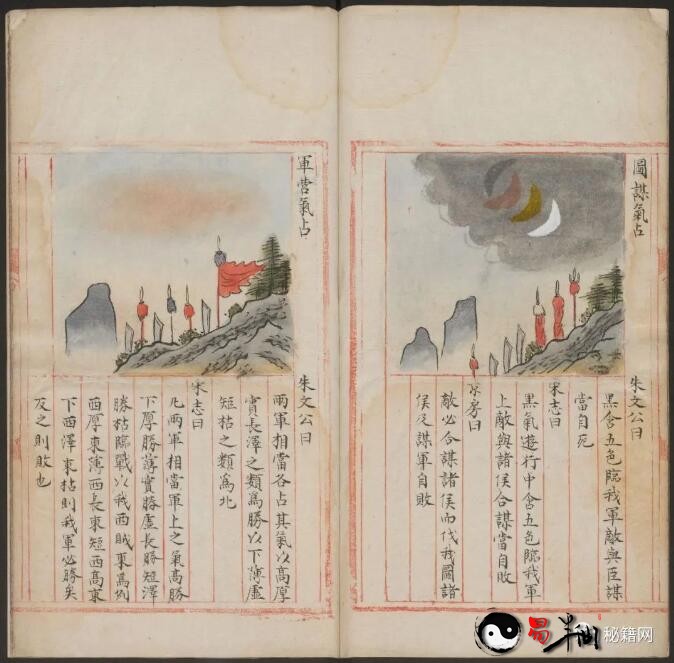 圖謀氣占
朱文公曰
黑含五色臨我軍敵與臣謀
當自死
宋志曰
黑氣遊行中含五色臨我軍
上敵與諸侯合謀當自敗
京房曰
敵必合謀諸侯而伐我圖諸
侯及謀軍自敗
軍營氣占
朱文公曰
兩軍相當各占其氣以高厚
實長澤之類為勝以下薄虛
短枯之類為北
宋志曰
凡兩軍相當軍上之氣高勝
下厚勝薄實勝虛長勝短澤
勝枯臨戰以我西賊東為例
西厚東薄西長東短西高東
下西澤東枯則我軍必勝矣
反之則敗也
易
秘籍网